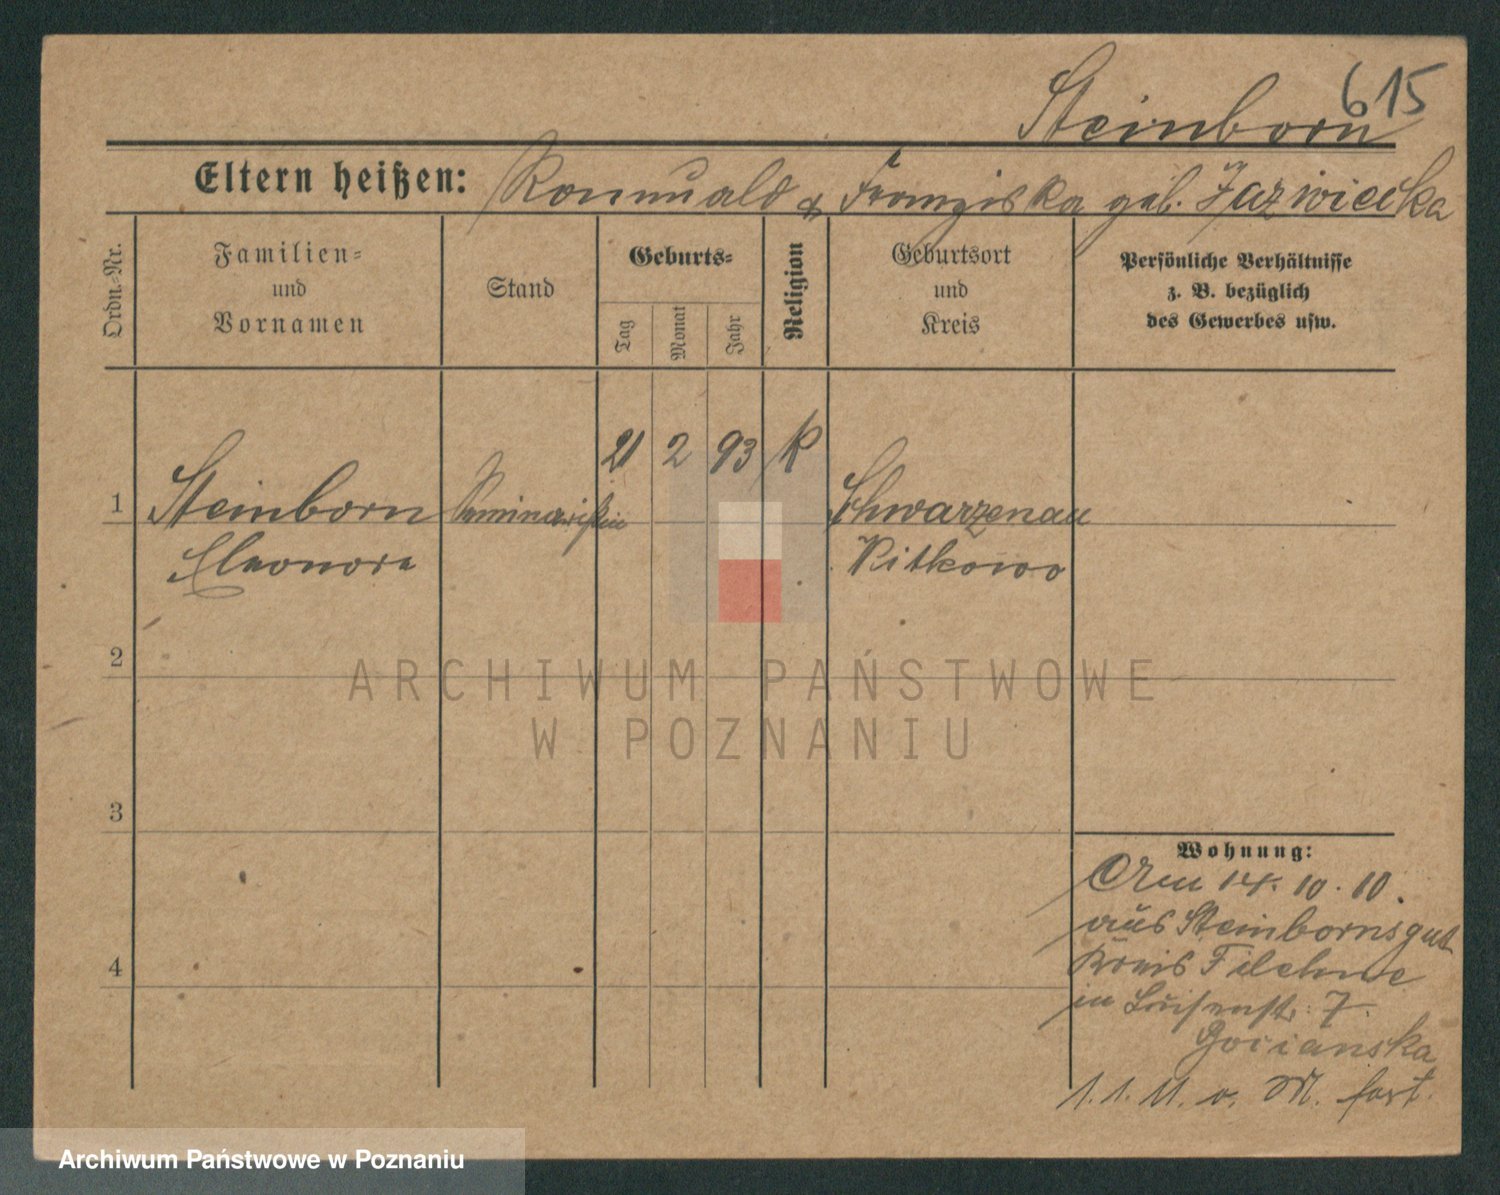 615
Steinborn
Eltern heißen: Romuald & Franziska geb.
Ordn.-Nr.
Familien-
und
Vornamen
Stand
Geburts-
Tag
Monat
Jahr
Religion
Geburtsort
und
Kreis
Persönliche Verhältnisse
z. B. bezüglich
des Gewerbes usw.
21 2 93 K
1 Steinborn Seminaristin Schwarzenau
Eleonore Witkowo
2
3
4
Wohnung:
Am 14. 10. 10.
aus Steinbornsgut
Kreis Filehne
in Luisenstr. 7.
1. 1. 11. o. M. fort.
ARCHIWUM PAŃSTWOWE
W POZNANIU
Archiwum Państwowe w Poznaniu